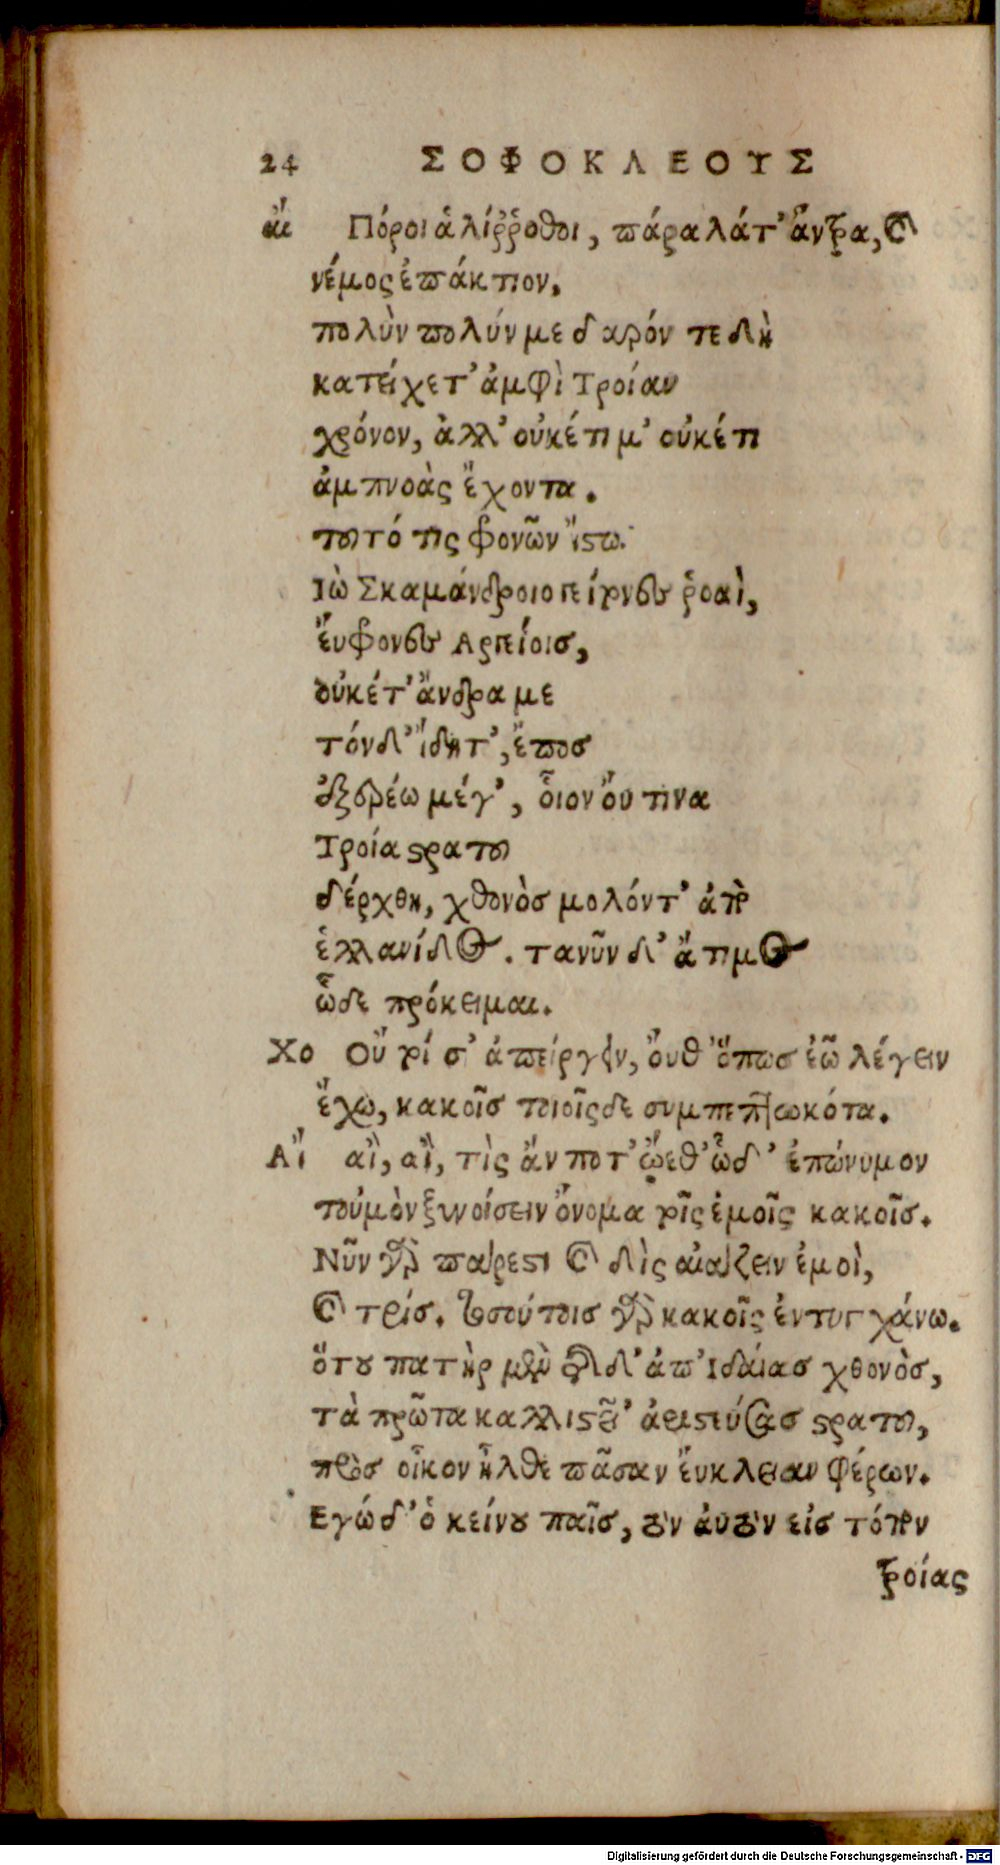 24 ΣΟΦΟΚΛΕΟΥΣ
αἴ Πόροι ἁλίῤῥοθοι, πάραλάτ' ἄντρα, καὶ
νέμος ἐπάκτιον,
πολὺν πολύν με δαρόν τε δὴ
κατείχετ' ἀμφὶ Τροίαν
χρόνον, ἀλλ' οὐκέτι μ' οὐκέτι
ἀμπνοὰς ἔχοντα.
τοῦτό τις φονῶν ἴστω.
Ιὼ Σκαμάνδριοι γείτονες ῥοαὶ,
ἔυφρονες Αργείοις,
οὐκέτ' ἄνδρα με
τόνδ' ἴδητ', ἔπος
ἐξερέω μέγ', οἷον ὄυ τινα
Τροία στρατοῦ
δέρχθη, χθονὸς μολόντ' ἀπὸ
ἑλλανίδος. τανῦν δ' ἄτιμος
ὧδε πρόκειμαι.
Χο Οὔ τοί σ' ἀπείργειν, ὄυθ' ὅπως ἐῶ λέγειν
ἔχω, κακοῖς τοιοῖςδε συμπεπτωκότα.
Αἴ αἲ, αἲ, τὶς ἄν ποτ' ᾤεθ' ὧδ' ἐπώνυμον
τοὐμὸν ξυνοίσειν ὄνομα τοῖς ἐμοῖς κακοῖς.
Νῦν γὰρ πάρεστι καὶ δὶς αἰάζειν ἐμοὶ,
καὶ τρίς. τοσούτοις γὰρ κακοῖς ἐντυγχάνω.
ὅτου πατὴρ μὲν τῆσδ' ἀπ' Ιδάιας χθονὸς,
τὰ πρῶτα καλλιστεῖ' ἀριστεύσας στρατοῦ,
πρὸς οἶκον ἦλθε πᾶσαν ἔυκλειαν φέρων.
Εγώ δ' ὁ κείνου παῖς, τὸν ἀυτὸν εἰς τόπον
τροίας
Digitalisierung gefördert durch die Deutsche Forschungsgemeinschaft - DFG